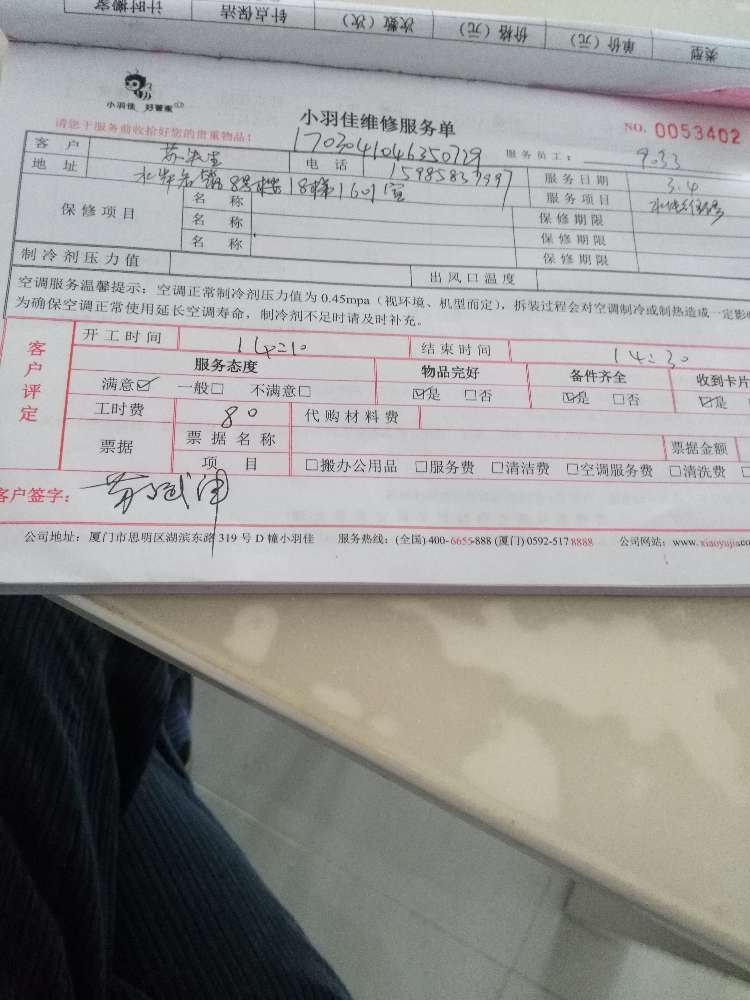 计时搬家 针点保洁 次数（次） 价格（元） 单价（元） 类型
小羽佳 好管家
小羽佳维修服务单
NO. 0053402
请您于服务前收拾好您的贵重物品！
1703041046350729
服务员工： 9033
客户 苏先生 电话 15985837997 服务日期 3.4
地址 8号楼18梯1601室 服务项目
保修项目 名称 保修期限
名称 保修期限
名称 保修期限
制冷剂压力值 出风口温度
空调服务温馨提示：空调正常制冷剂压力值为0.45mpa（视环境、机型而定），拆装过程会对空调制冷或制热造成一定影
为确保空调正常使用延长空调寿命，制冷剂不足时请及时补充。
客户评定
开工时间 14:10 结束时间 14:30
服务态度 物品完好 备件齐全 收到卡片
满意☑ 一般□ 不满意□ ☑是 □否 ☑是 □否 ☑是
工时费 80 代购材料费
票据 票据名称 票据金额
项目 □搬办公用品 □服务费 □清洁费 □空调服务费 □清洗费
客户签字：
公司地址：厦门市思明区湖滨东路319号D幢小羽佳 服务热线：(全国) 400-6655-888 (厦门) 0592-5178888 公司网站：www.xiaoyujia.co